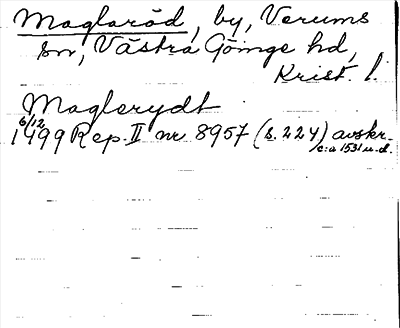 Maglaröd, by, Verums
sn, Västra Göinge hd,
Krist. l.
Maglerydt
6/12
1499 Rep. II nr 8957 (s. 224) avskr.
c:a 1531 u.d.